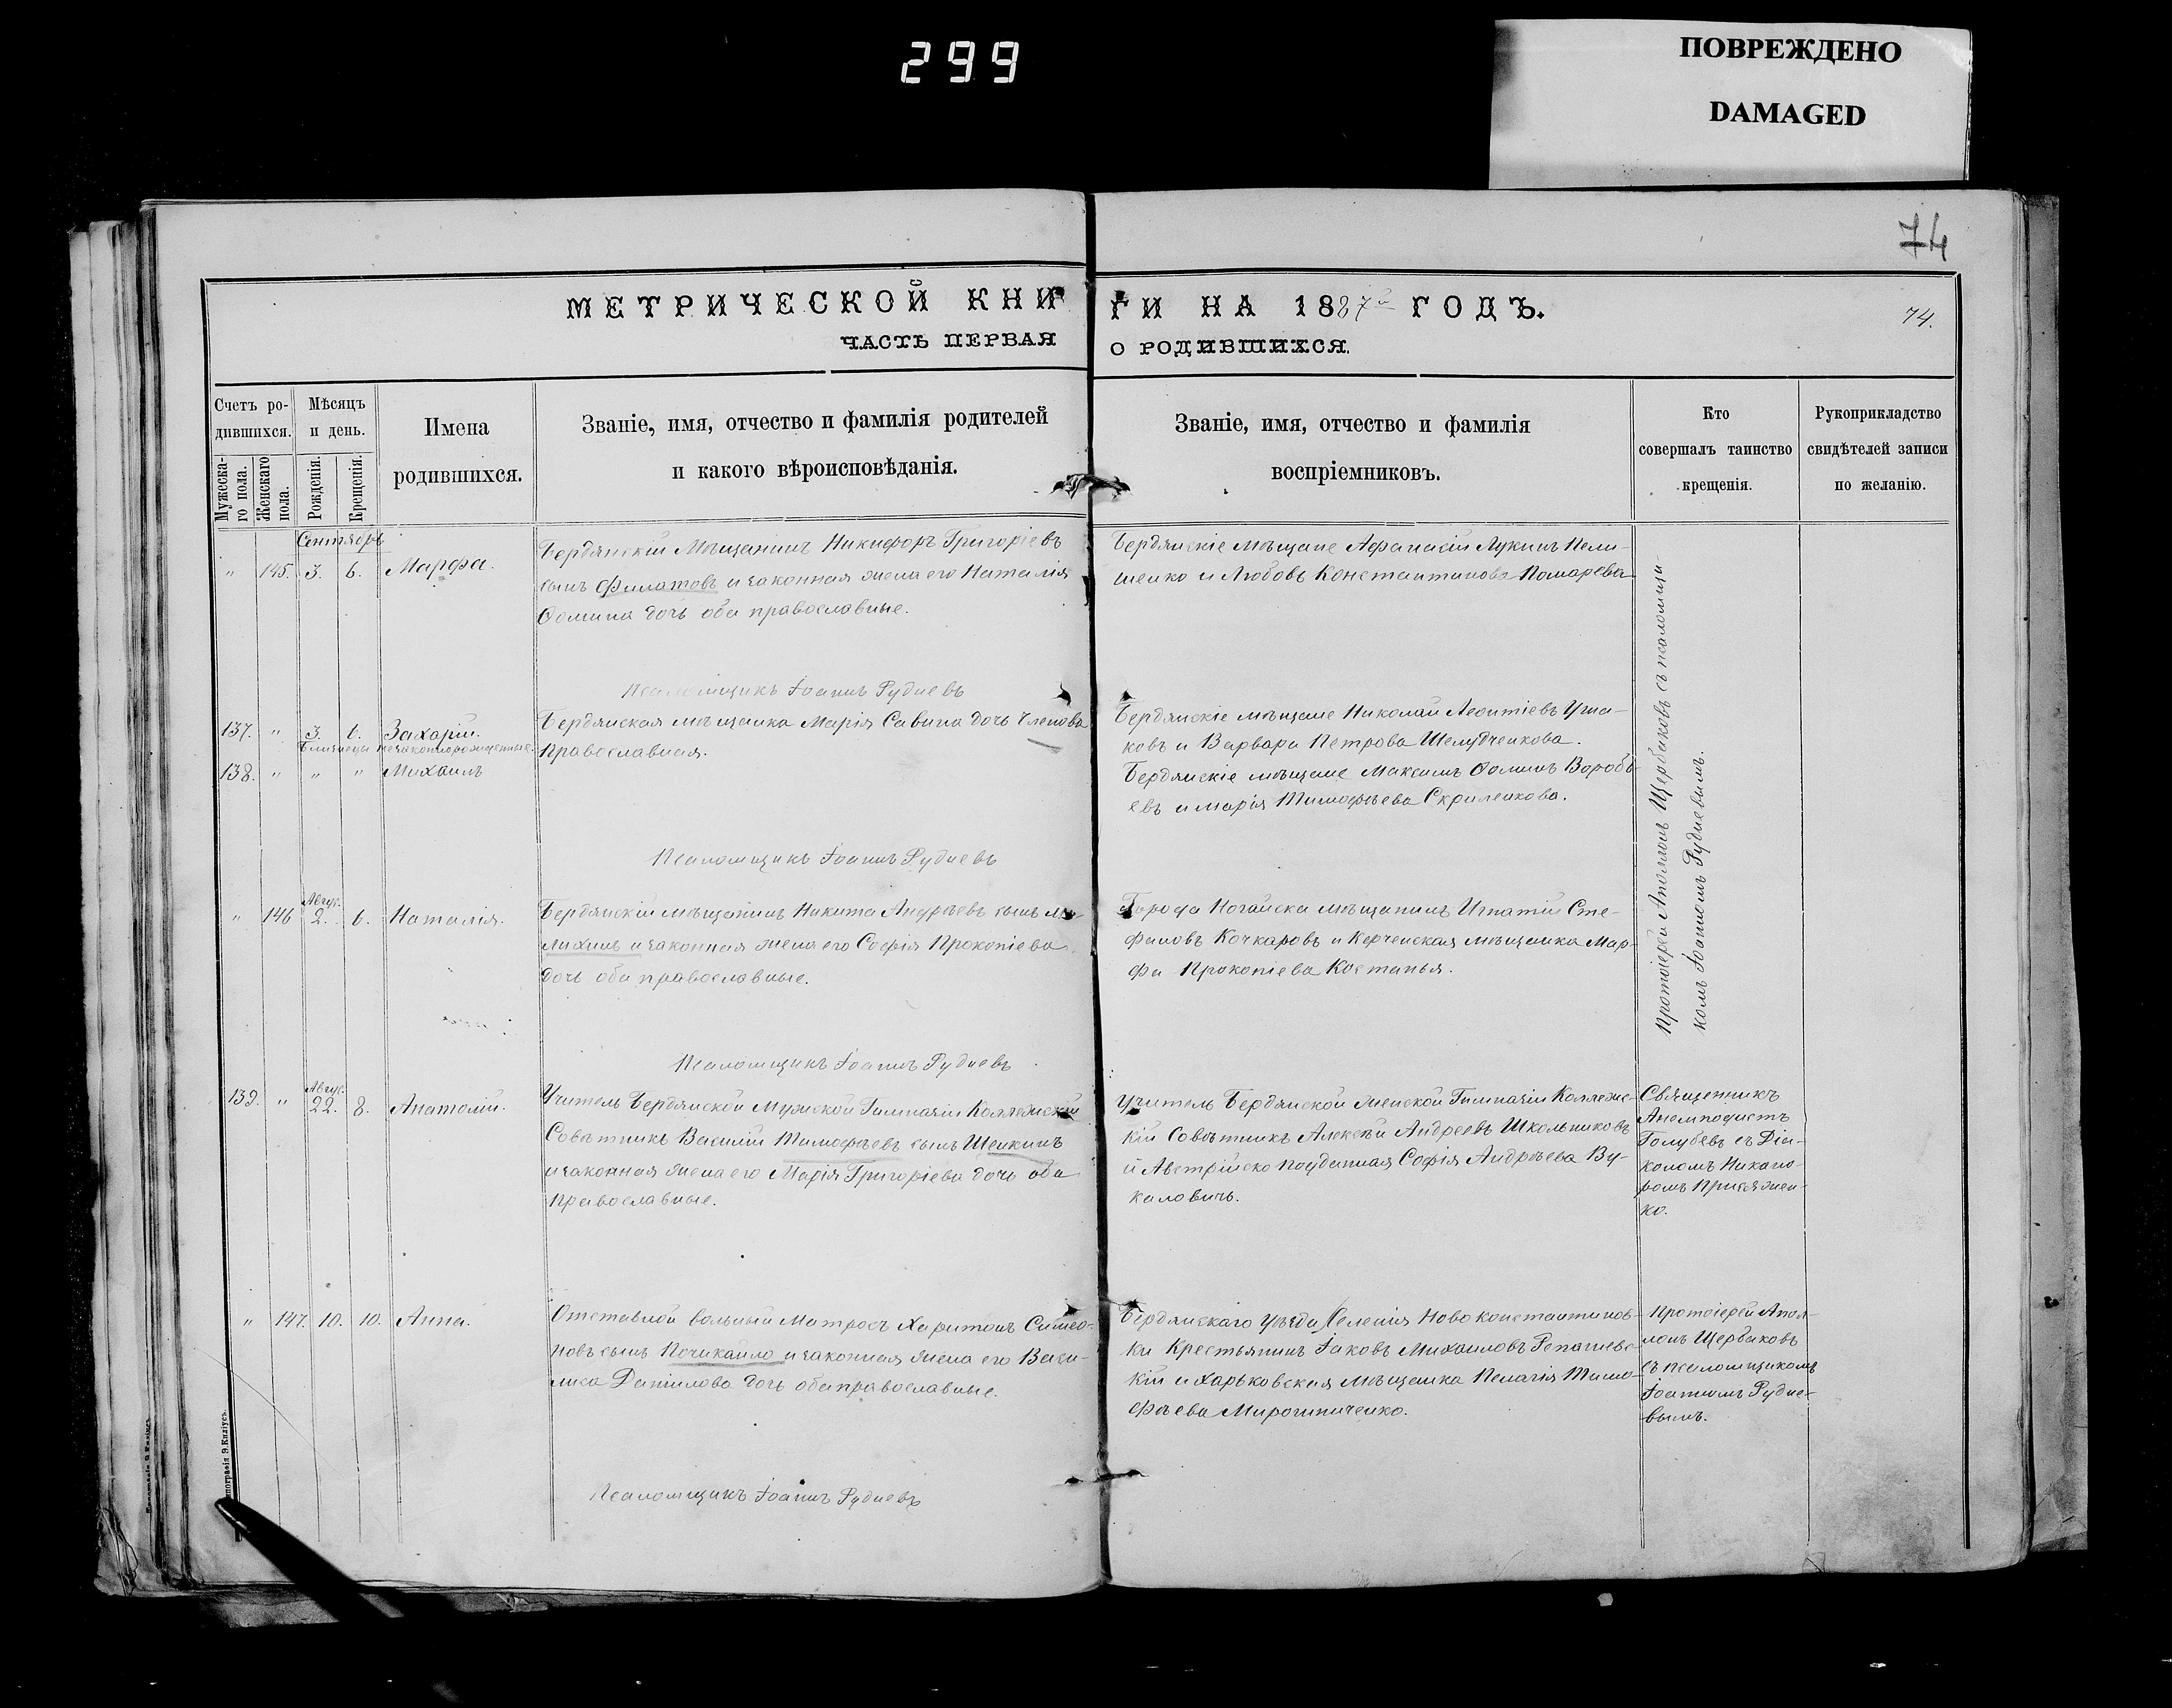 299
ПОВРЕЖДЕНО
DAMAGED
74
МЕТРИЧЕСКОЙ КНИГИ НА 1887й ГОДЪ.
74.
ЧАСТЬ ПЕРВАЯ О РОДИВШИХСЯ.
Счетъ ро-
дившихся.
Мужеска-
го пола.
Женскаго
пола.
Мѣсяцъ
и день.
Рожденія.
Крещенія.
Имена
родившихся.
Званіе, имя, отчество и фамилія родителей
и какого вѣроисповѣданія.
Званіе, имя, отчество и фамилія
воспріемниковъ.
Кто
совершалъ таинство
крещенія.
Рукоприкладство
свидѣтелей записи
по желанію.
Сентябрь
" 145. 3. 6. Марфа.
Бердянскій Мѣщанинъ Никифоръ Григоріевъ
сынъ Филатовъ и законная жена его Наталія
Ѳомина дочь оба православные.
Бердянскіе мѣщане Афанасій Лукинъ Пели-
шенко и Любовь Константинова Помарева
Протоіерей Аполлонъ Щербаковъ съ псаломщи-
комъ Іоанномъ Рудневымъ.
Псаломщикъ Іоаннъ Рудневъ
137. " 3. 6. Захарій.
Близнецы незаконнорожденные.
138. " " " Михаилъ
Бердянская мѣщанка Марія Савина дочь Членова
Православная.
Бердянскіе мѣщане Николай Леонтіевъ Уша-
ковъ и Варвара Петрова Шелудченкова.
Бердянскіе мѣщане Максимъ Ѳоминъ Воробь-
евъ и Марія Тимофѣева Скриленкова.
Псаломщикъ Іоаннъ Рудневъ
Авгус.
" 146 2. 6. Наталія.
Бердянскій мѣщанинъ Никита Андрѣевъ сынъ
лихинъ и законная жена его Софія Прокопіева
дочь оба православные.
Города Ногайска мѣщанинъ Игнатій Сте-
фановъ Кочкаровъ и Керченская мѣщанка Мар-
фа Прокопіева Костанья.
Псаломщикъ Іоаннъ Рудневъ
Авгус.
139. " 22. 8. Анатолій.
Учитель Бердянской Мужской Гимназіи Коллежскій
Совѣтникъ Василій Тимофѣевъ сынъ Шейкинъ
и законная жена его Марія Григоріева дочь оба
Православные.
Учитель Бердянской женской Гимназіи Коллежс-
кій Совѣтникъ Алексѣй Андреевъ Школьниковъ
и Австрійско подданная Софія Андрѣева Ву-
каловичъ.
Священникъ
Анемподистъ
Голубевъ съ Діа-
кономъ Никано-
ромъ Присяжен-
ко.
" 147. 10. 10. Анна.
Отставной вольный Матросъ Харитонъ Симео-
новъ сынъ Почикайло и законная жена его Васи-
лиса Даніилова дочь оба православные.
Бердянскаго уѣзда Селенія Новоконстантинов-
ки Крестьянинъ Іаковъ Михаиловъ Репашевс-
кій и Харьковская Мѣщанка Пелагія Тимо-
фѣева Мирошниченко.
Протоіерей Апол-
лонъ Щербаковъ
съ псаломщикомъ
Іоанномъ Рудне-
вымъ.
Псаломщикъ Іоаннъ Рудневъ